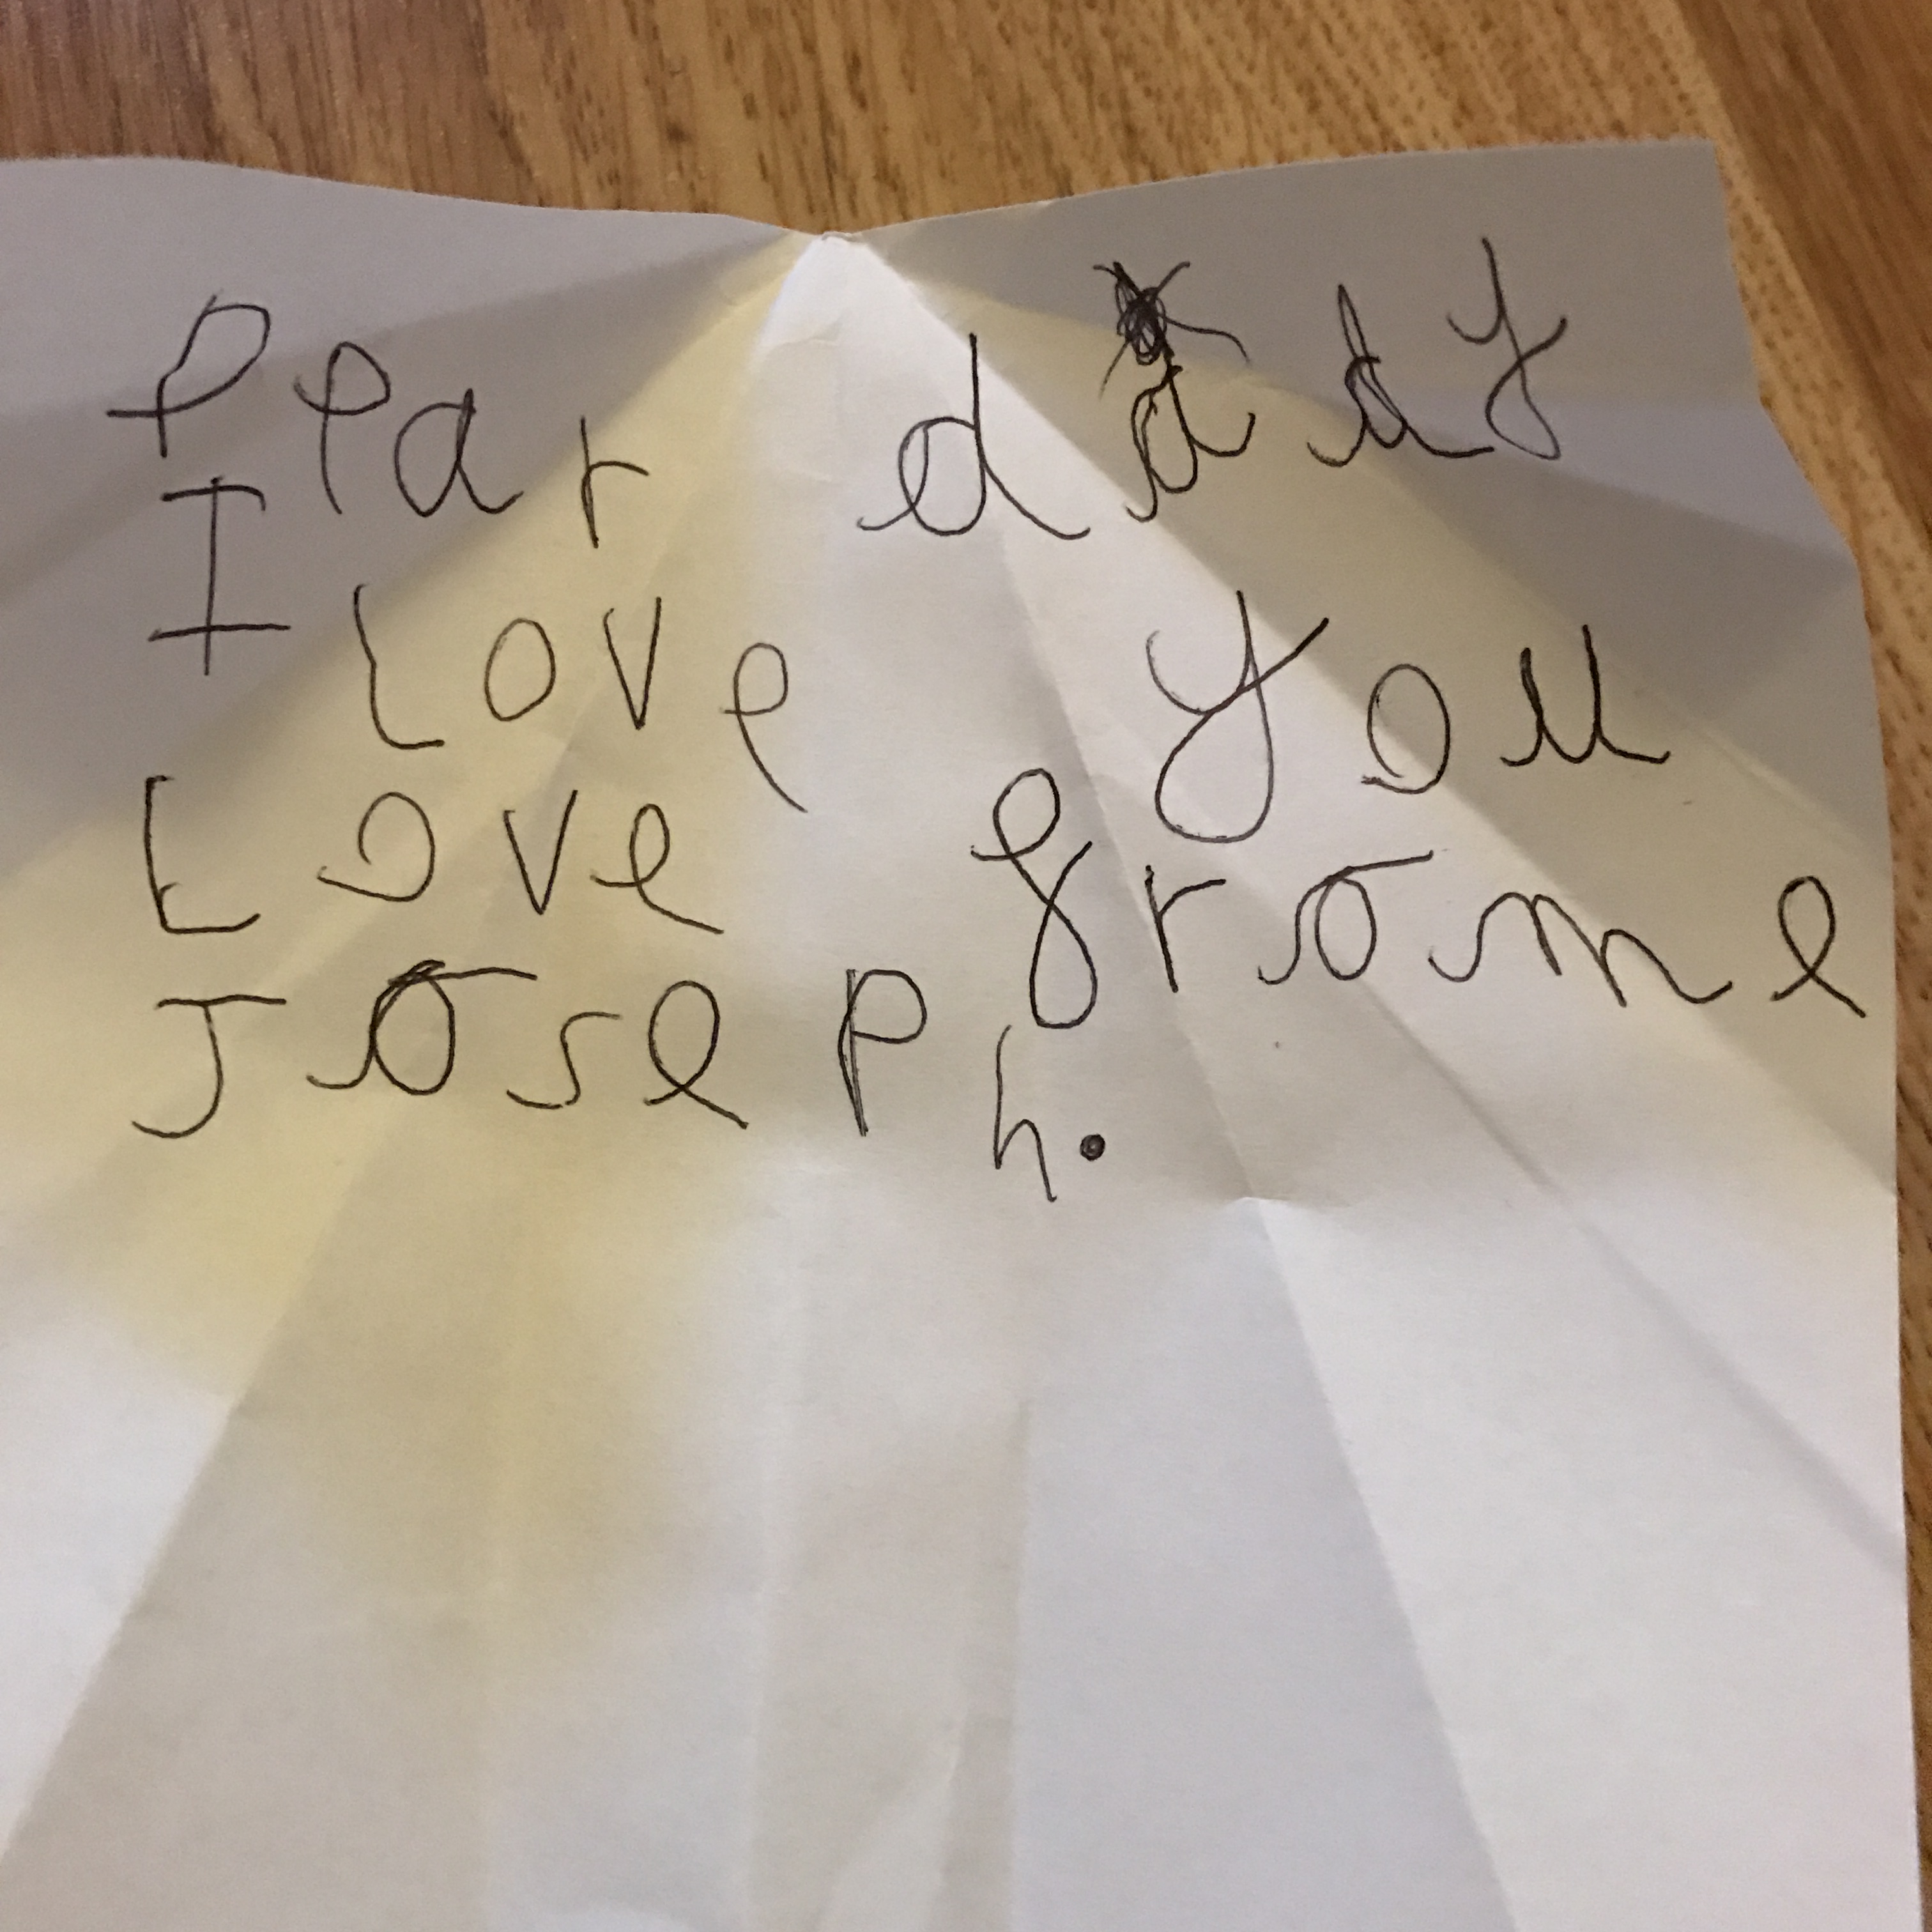 Dear dady
I love you
Love frome
Joseph.